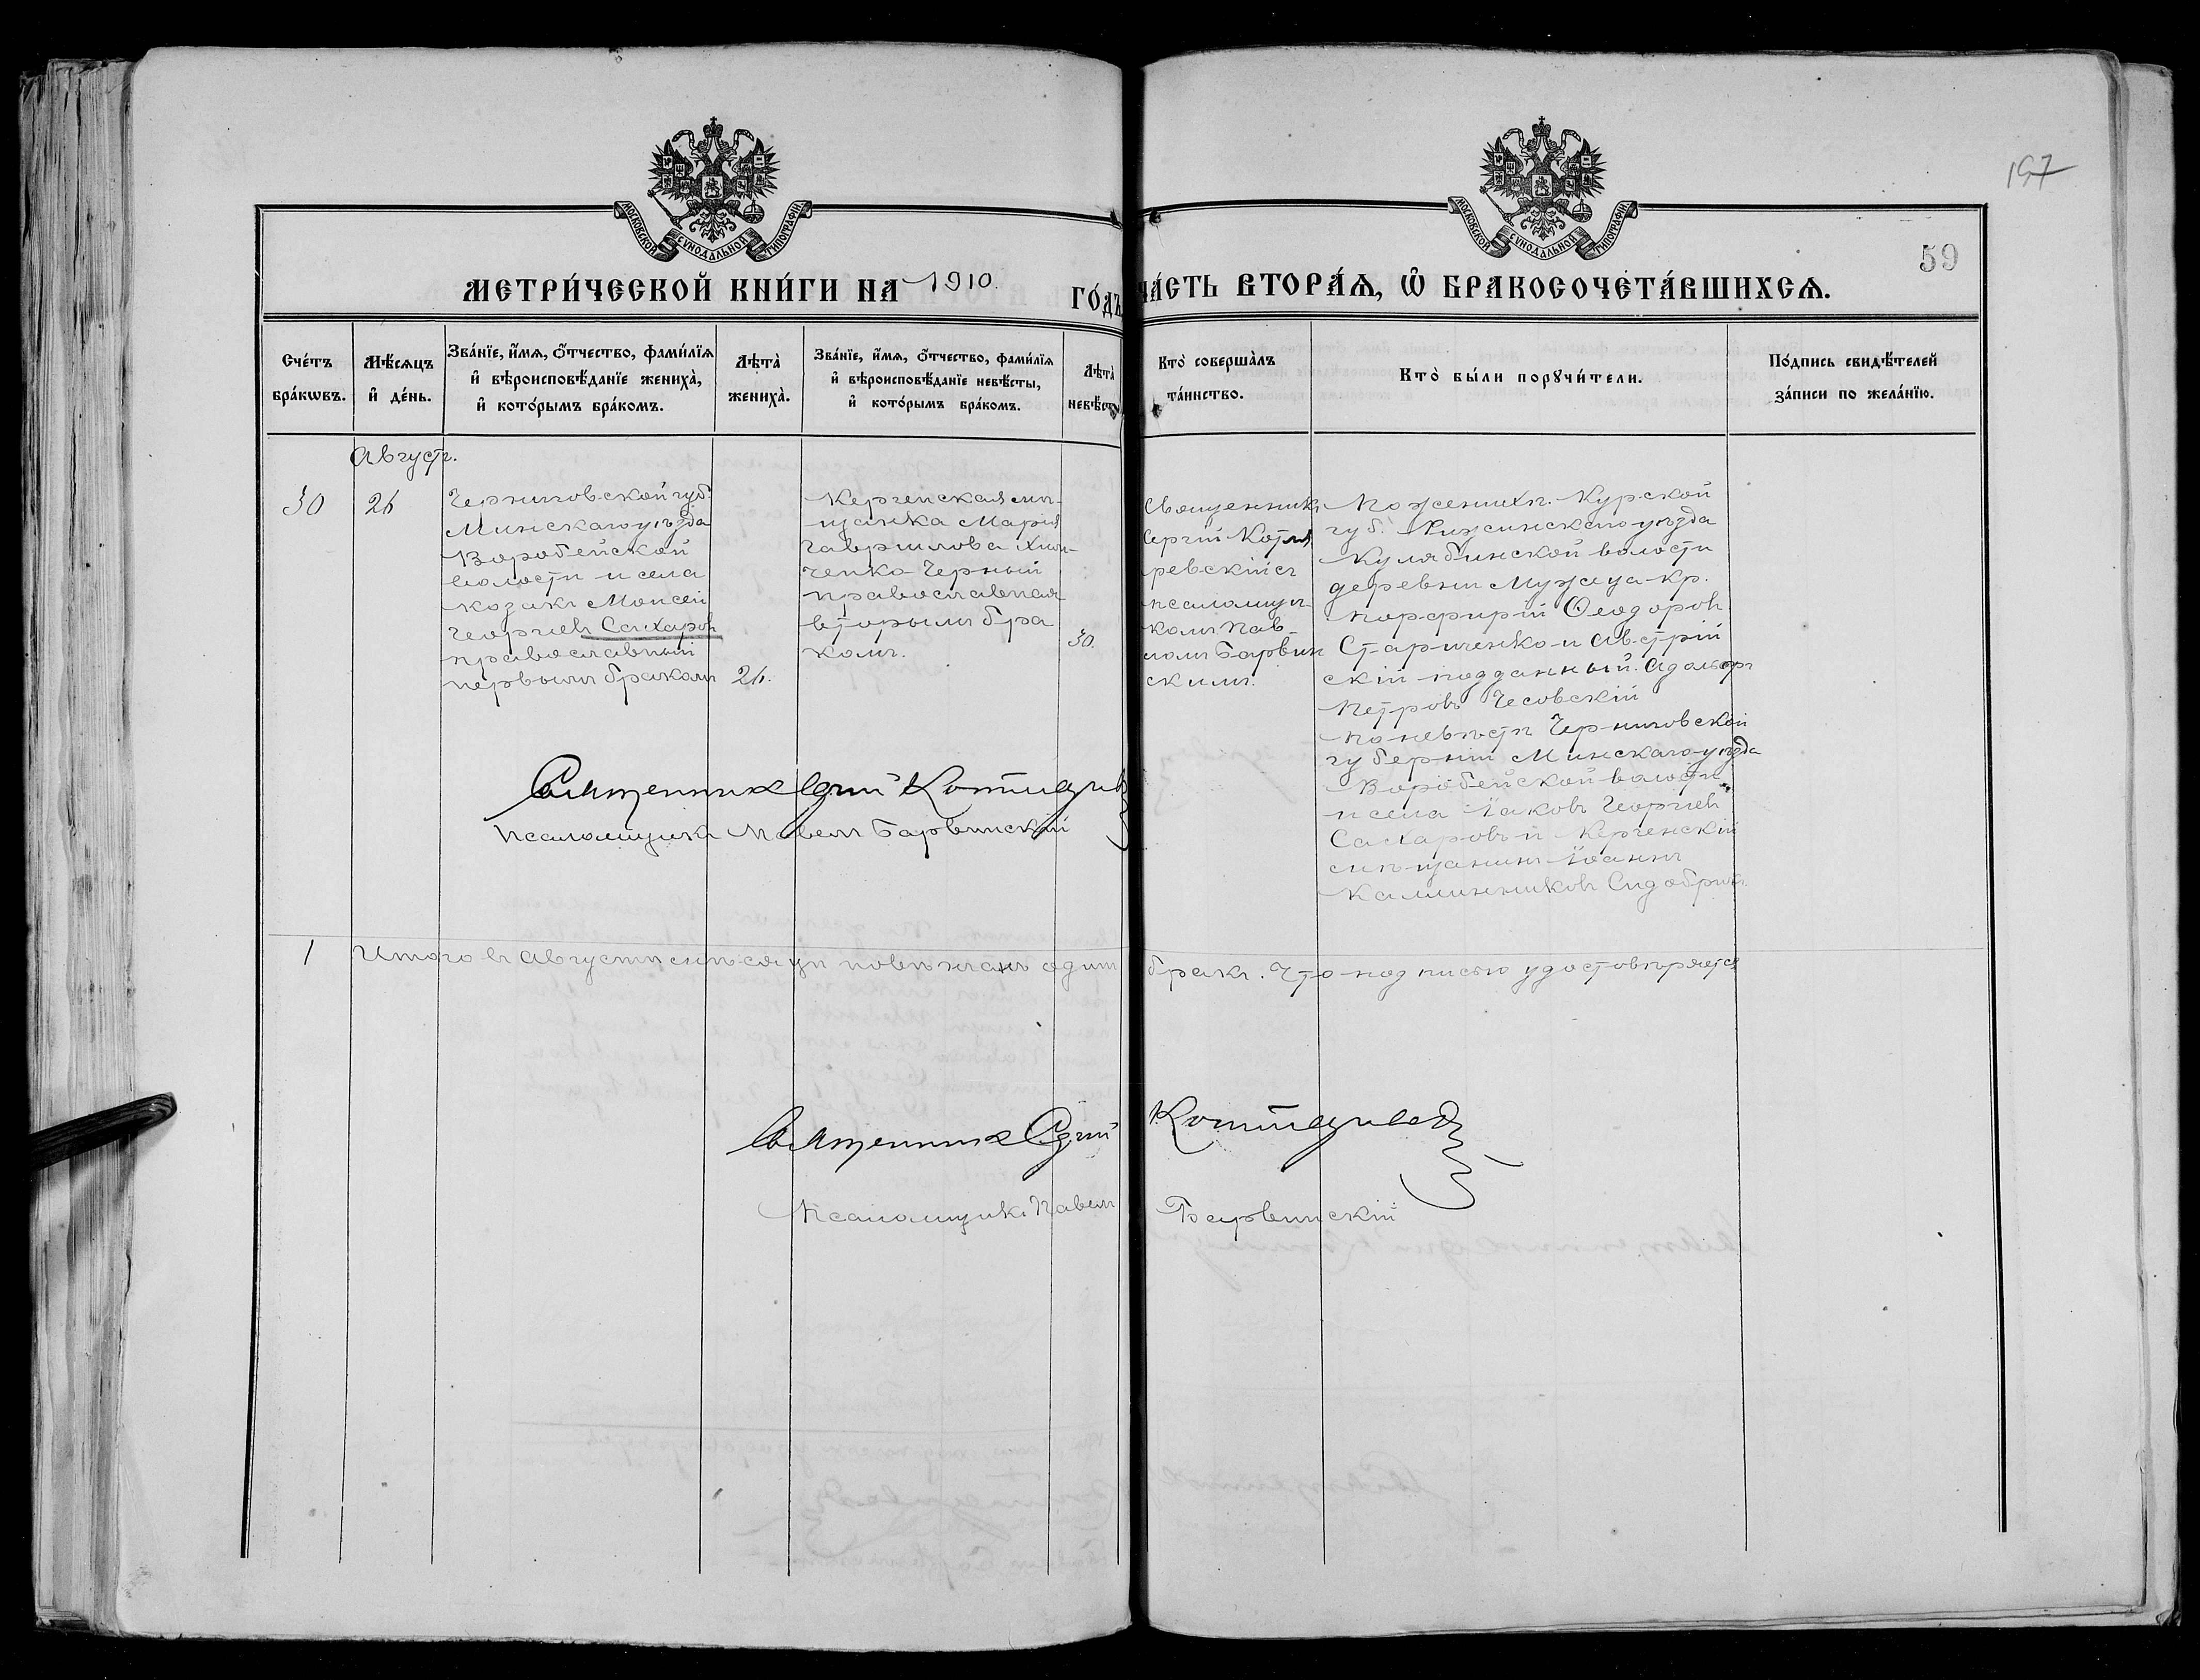 157
59
МОСКОВСКОЙ СУНОДАЛЬНОЙ ТИПОГРАФІИ.
МОСКОВСКОЙ СУНОДАЛЬНОЙ ТИПОГРАФІИ.
МЕТРИ́ЧЕСКОЙ КНИ́ГИ НА 1910. ГО́ДЪ
ЧА́СТЬ ВТОРА́Ѧ, Ѡ҆ БРАКОСОЧЕТА́ВШИХСѦ.
Сче́тъ
бра́кѡвъ.
Мѣ́сѧцъ
и҆ де́нь.
Зва́нїе, и҆́мѧ, ѻ҆́тчество, фами́лїѧ
и҆ вѣроисповѣ́данїе жениха̀,
и҆ кото́рымъ бра́комъ.
Лѣта̀
жениха̀.
Зва́нїе, и҆́мѧ, ѻ҆́тчество, фами́лїѧ
и҆ вѣроисповѣ́данїе невѣ́сты,
и҆ кото́рымъ бра́комъ.
Лѣта̀
невѣ́сты
Кто̀ соверша́лъ
та́инство.
Кто̀ бы́ли порꙋчи́тели.
По́дпись свидѣ́телей
за́писи по жела́нїю.
Августъ.
30
26
Черниговской губ.
Минскаго уѣзда
Воробейской
волости и села
козакъ Моисей
Георгіевъ Сахаровъ
православный
первымъ бракомъ
26.
Керченская мѣ-
щанка Марія
Гаврилова
Черный
православная
вторымъ бра
комъ.
30.
Священникъ
Сергій Котля
ревскій съ
псаломщи-
комъ Пав-
ломъ Барвин
скимъ.
По женихѣ. Курской
губ. уѣзда
Кулябинской волости
деревни Мужеца кр.
Порфирій Ѳеодоровъ
Стариченко и Австрій
скій подданный. Адольфъ
Петровъ Чесовскій
по невѣстѣ Черниговской
губерніи Минскаго уѣзда
Воробейской волости
и села Іаковъ Георгіевъ
Сахаровъ и Керченскій
мѣщанинъ Іоаннъ
Калинниковъ
Священникъ Сергій Котляревск
Псаломщикъ Павелъ Барвинскій
1 Итого въ Августѣ мѣсяцѣ повѣнчанъ одинъ бракъ. Что подписью удостовѣряется
Священникъ Сергій Котляревск
Псаломщикъ Павелъ Барвинскій